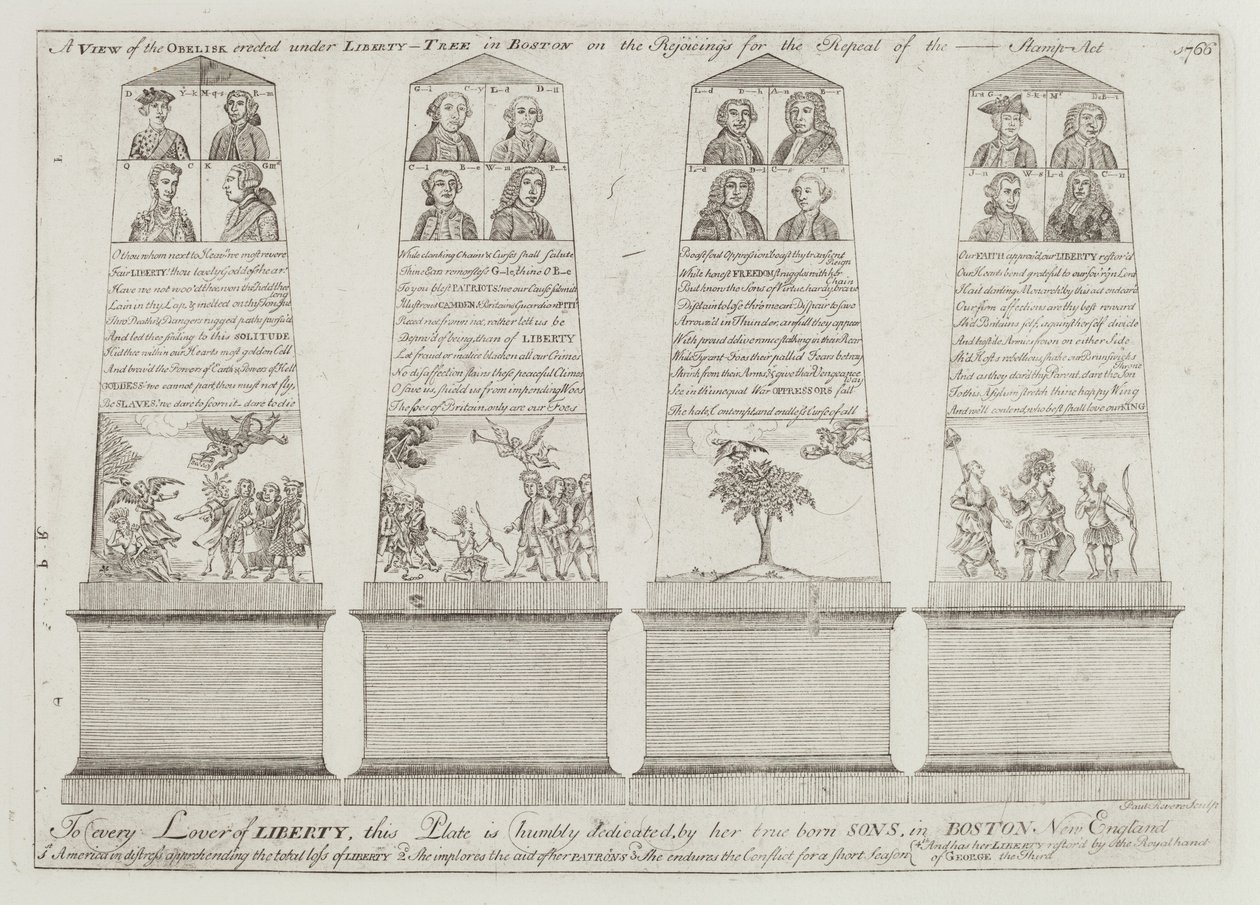 A VIEW of the OBELISK erected under LIBERTY-TREE in BOSTON on the Rejoicings for the Repeal of the —— Stamp-Act 1766
D Y-k M-q-s R-m
Q C K G m
O thou whom next to Heav'n we most revere
Fair LIBERTY! thou lovely Goddess hear!
Have we not woo'd thee, won thee, held thee long
Lain in thy Lap & melted on thy Tongue
Thro Deaths & Dangers rugged paths pursu'd
And led thee smiling to this SOLITUDE
Hid thee within our Hearts most golden Cell
And brav'd the Powers of Earth & Powers of Hell
GODDESS! we cannot part, thou must not fly,
Be SLAVES! we dare to scorn it - dare to die
G-l C-y L-d D-
C-l B-e W-m P-t
While clanking Chains & Curses shall salute
Thine Ears remorseless G-le, thine O B-e
To you blest PATRIOTS! we our Cause submit
Illustrious CAMDEN, Britains Guardian PITT!
Recede not frown not, rather let us be
Depriv'd of being, than of LIBERTY
Let fraud or malice blacken all our Crimes
No disaffection stains these peaceful Climes
O save us, shield us from impending Woes
The foes of Britain, only are our Foes
L-d D-h A-n B-r
L-d D-l C-s T-d
Boast foul Oppression! boast thy transient Reign
While honest FREEDOM struggles with her Chain
But know the Sons of Virtue, hardy, brave
Disdain to lose thro mean Dispair to save
Arrouz'd in Thunder, awfull they appear
With proud deliverance stalking in their Rear
While Tyrant-Foes their pallid Fears betray
Shrink from their Arms, & give their Vengeance Way
See in th'unequal War OPPRESSORS fall
The hate, Contempt, and endless Curse of all
L-d G- S-k-e M-r D-B-t
J-n W-s L-d C-n
Our FAITH approv'd, our LIBERTY restor'd
Our Hearts bend grateful to our sov'r'gn Lord
Hail darling Monarch! by this act endear'd
Our firm affections are thy best reward
Sh'd Britains self, against herself divide
And hostile Armies frown on either Side
Sh'd Hosts rebellious, shake our Brunswick's Throne
And as they dar'd thy Parent, dare the Son
To this Asylum stretch thine happy Wing
And we'll contend, who best shall love our KING
Paul Revere Sculp
To every Lover of LIBERTY, this Plate is humbly dedicated, by her true born SONS, in BOSTON New England
1st America in distress apprehending the total loss of LIBERTY 2d She implores the aid of her PATRONS 3d She endures the Conflict for a short Season 4th And has her LIBERTY restor'd by the Royal hand
of GEORGE the Third